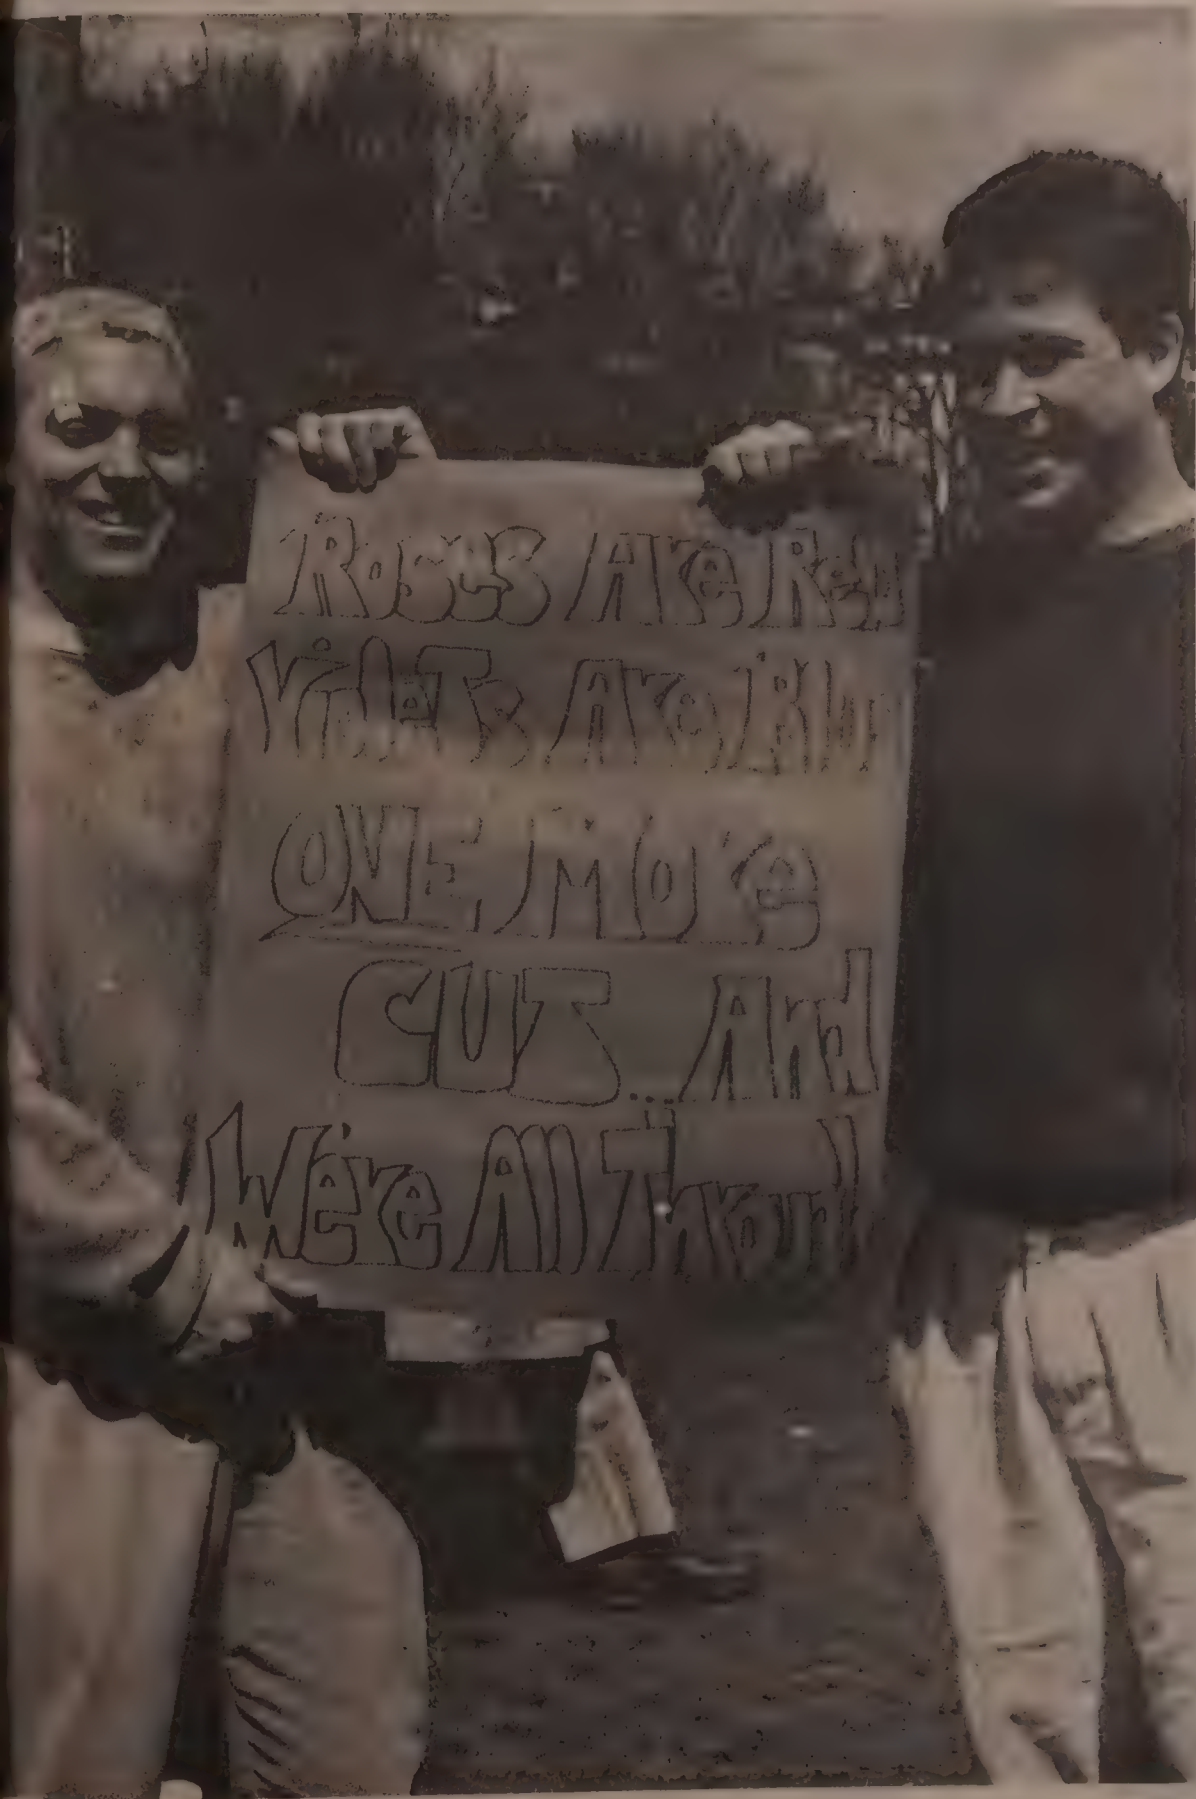 Roses Are Red
Violets Are Blue
ONE More
CUT... And
We're All Through